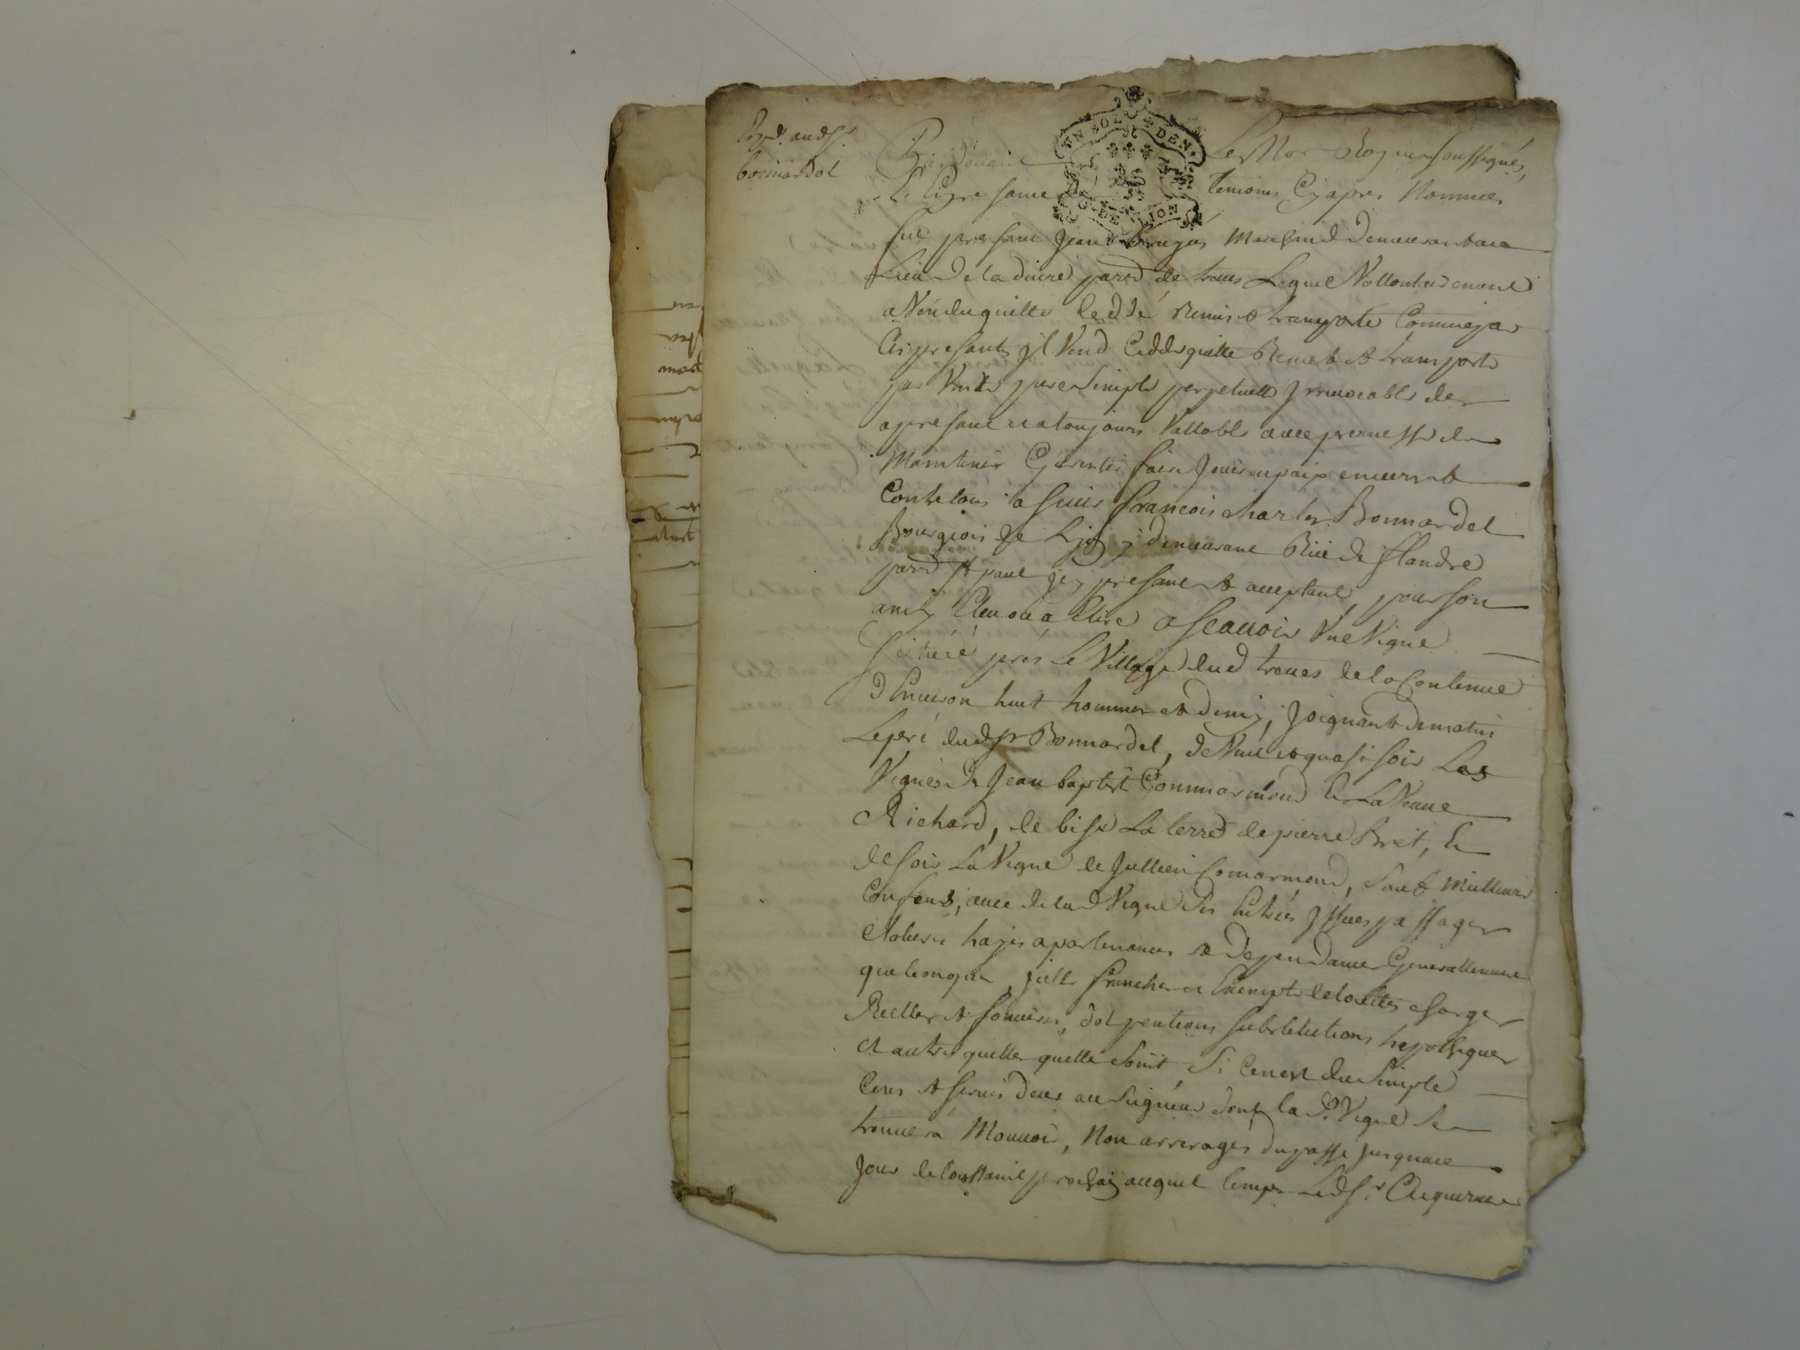 Expd. aud Sr.
bonnardel
UN SOL 4 DEN.
G. DE LION
Pardevant Le Nore Royal soussigné,
Et En presance de temoins Cyapres Nommes
fut presant Jean Marchand demeurant au
Lieu de la doire paroisse de treves Lequel Vollontairement
a Vendu quitté ceddé remis & transporté Comme par
Cespresantes jl Vend Cedde quitte Remet & transporte
par Vente pure Simple perpetuelle Jrrevocable des
apresant et a toujours Vallable avec promesse de
Maintenir Garentir faire Jouir en paix envers et
Contre tous a sieur francois charles Bonnardel
Bourgeois de Lyon y demeurant Rüe de flandre
paroisse St paul jcy presant & acceptant, pour son
amy Eleu ou a Elire a scavoir Vne Vigne
scitueé pres Le Village dud treves de la Contenue
d'Environ huit hommes et demy, Joignant de matin
Le pré dud Sr Bonnardel, de Vent et quasi soir Les
Vignes de Jean baptiste Commarmond & La Veuve
Richard, de bise La terre de pierre Bret, &
de soir La Vigne de Jullien Comarmond, sauf meilleurs
Confins, avec de lad Vigne ses Entrées Jssues passages
clotures hayes apartenances & dependances Generallement
quelconques, jcelle franche et Exempte de touttes charges
Reelles & foncieres, dot pentions substitutions hypotheques
et autres quelle quelle soint, Si cenest du simple
Cens & servis deus au Seigneur dont la de Vigne se
trouvera Mouvoir, Non arrerages du passé jusquau
Jour de la toussaint prochain auquel temps Led Sr. Acquereur